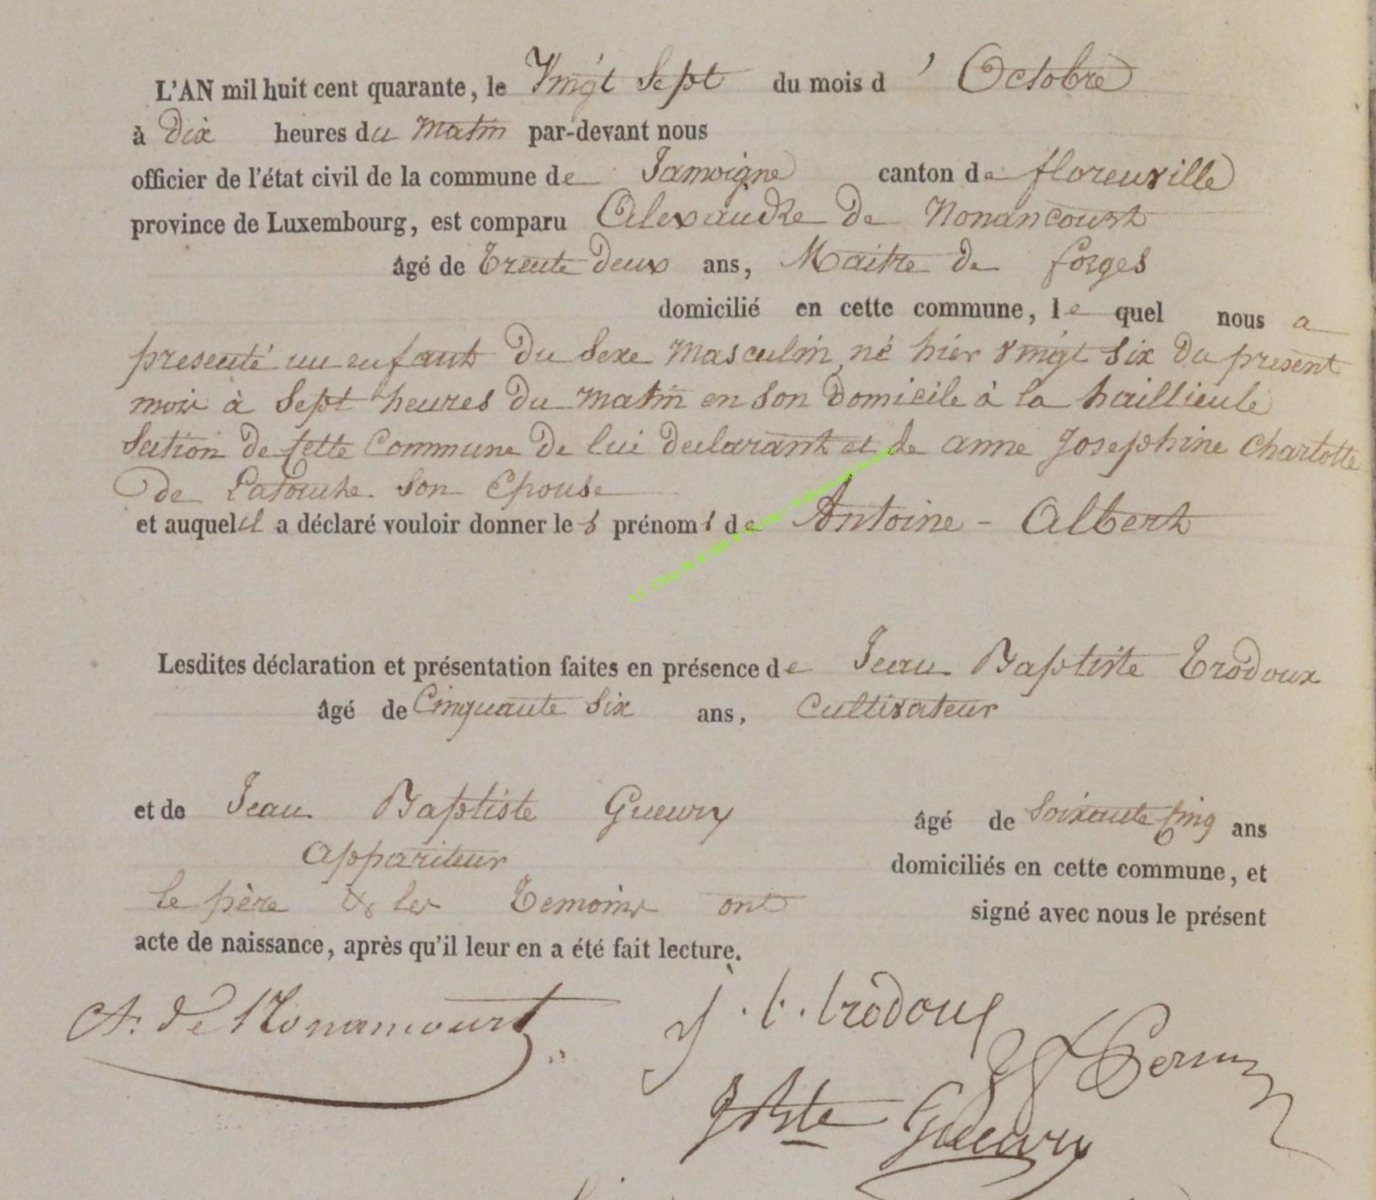 L'AN mil huit cent quarante, le Vingt Sept du mois d' Octobre
à Dix heures du Matin par-devant nous
officier de l'état civil de la commune de Jamoigne canton de florenville
province de Luxembourg, est comparu Alexandre de Nonancourt
âgé de Trente Deux ans, Maitre de forges
domicilié en cette commune, le quel nous a
presenté un enfant Du Sexe Masculin, né hier vingt six Du present
mois à Sept heures Du Matin en son Domicile à la haillieule
Section De Cette Commune De lui declarant et de anne Josephine Charlotte
De Latouche son Epouse
et auquel il a déclaré vouloir donner le s prénom s de Antoine - Albert
Lesdites déclaration et présentation faites en présence de Jean Baptiste Trodoux
âgé de Cinquante Six ans, Cultivateur
et de Jean Baptiste Gueury âgé de Soixante Cinq ans
appariteur domiciliés en cette commune, et
le père & les Temoins ont signé avec nous le présent
acte de naissance, après qu'il leur en a été fait lecture.
A. de Nonancourt J. b. trodoux
J Bte Gueury